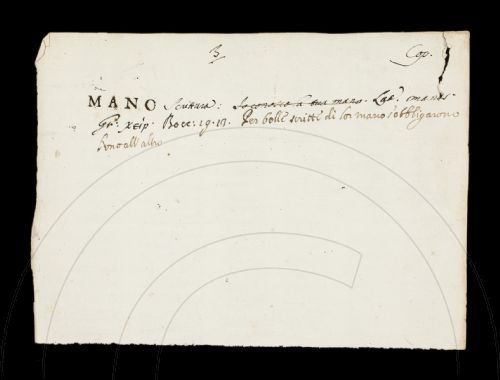 3 Cop.
MANO Scrittura: Io conosco la tua mano. Lat. manus.
Gr. χείρ. Bocc: 19. 13. Per belle scritte di lor mano s'obbligarono
l'uno all'altro